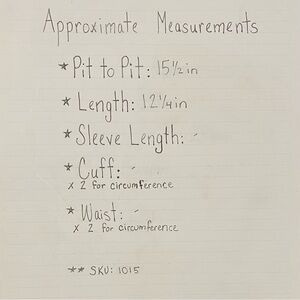 Approximate Measurements
* Pit to Pit: 15 1/2 in
* Length: 12 1/4 in
* Sleeve Length: -
* Cuff: -
x 2 for circumference
* Waist: -
x 2 for circumference
** SKU: 1015